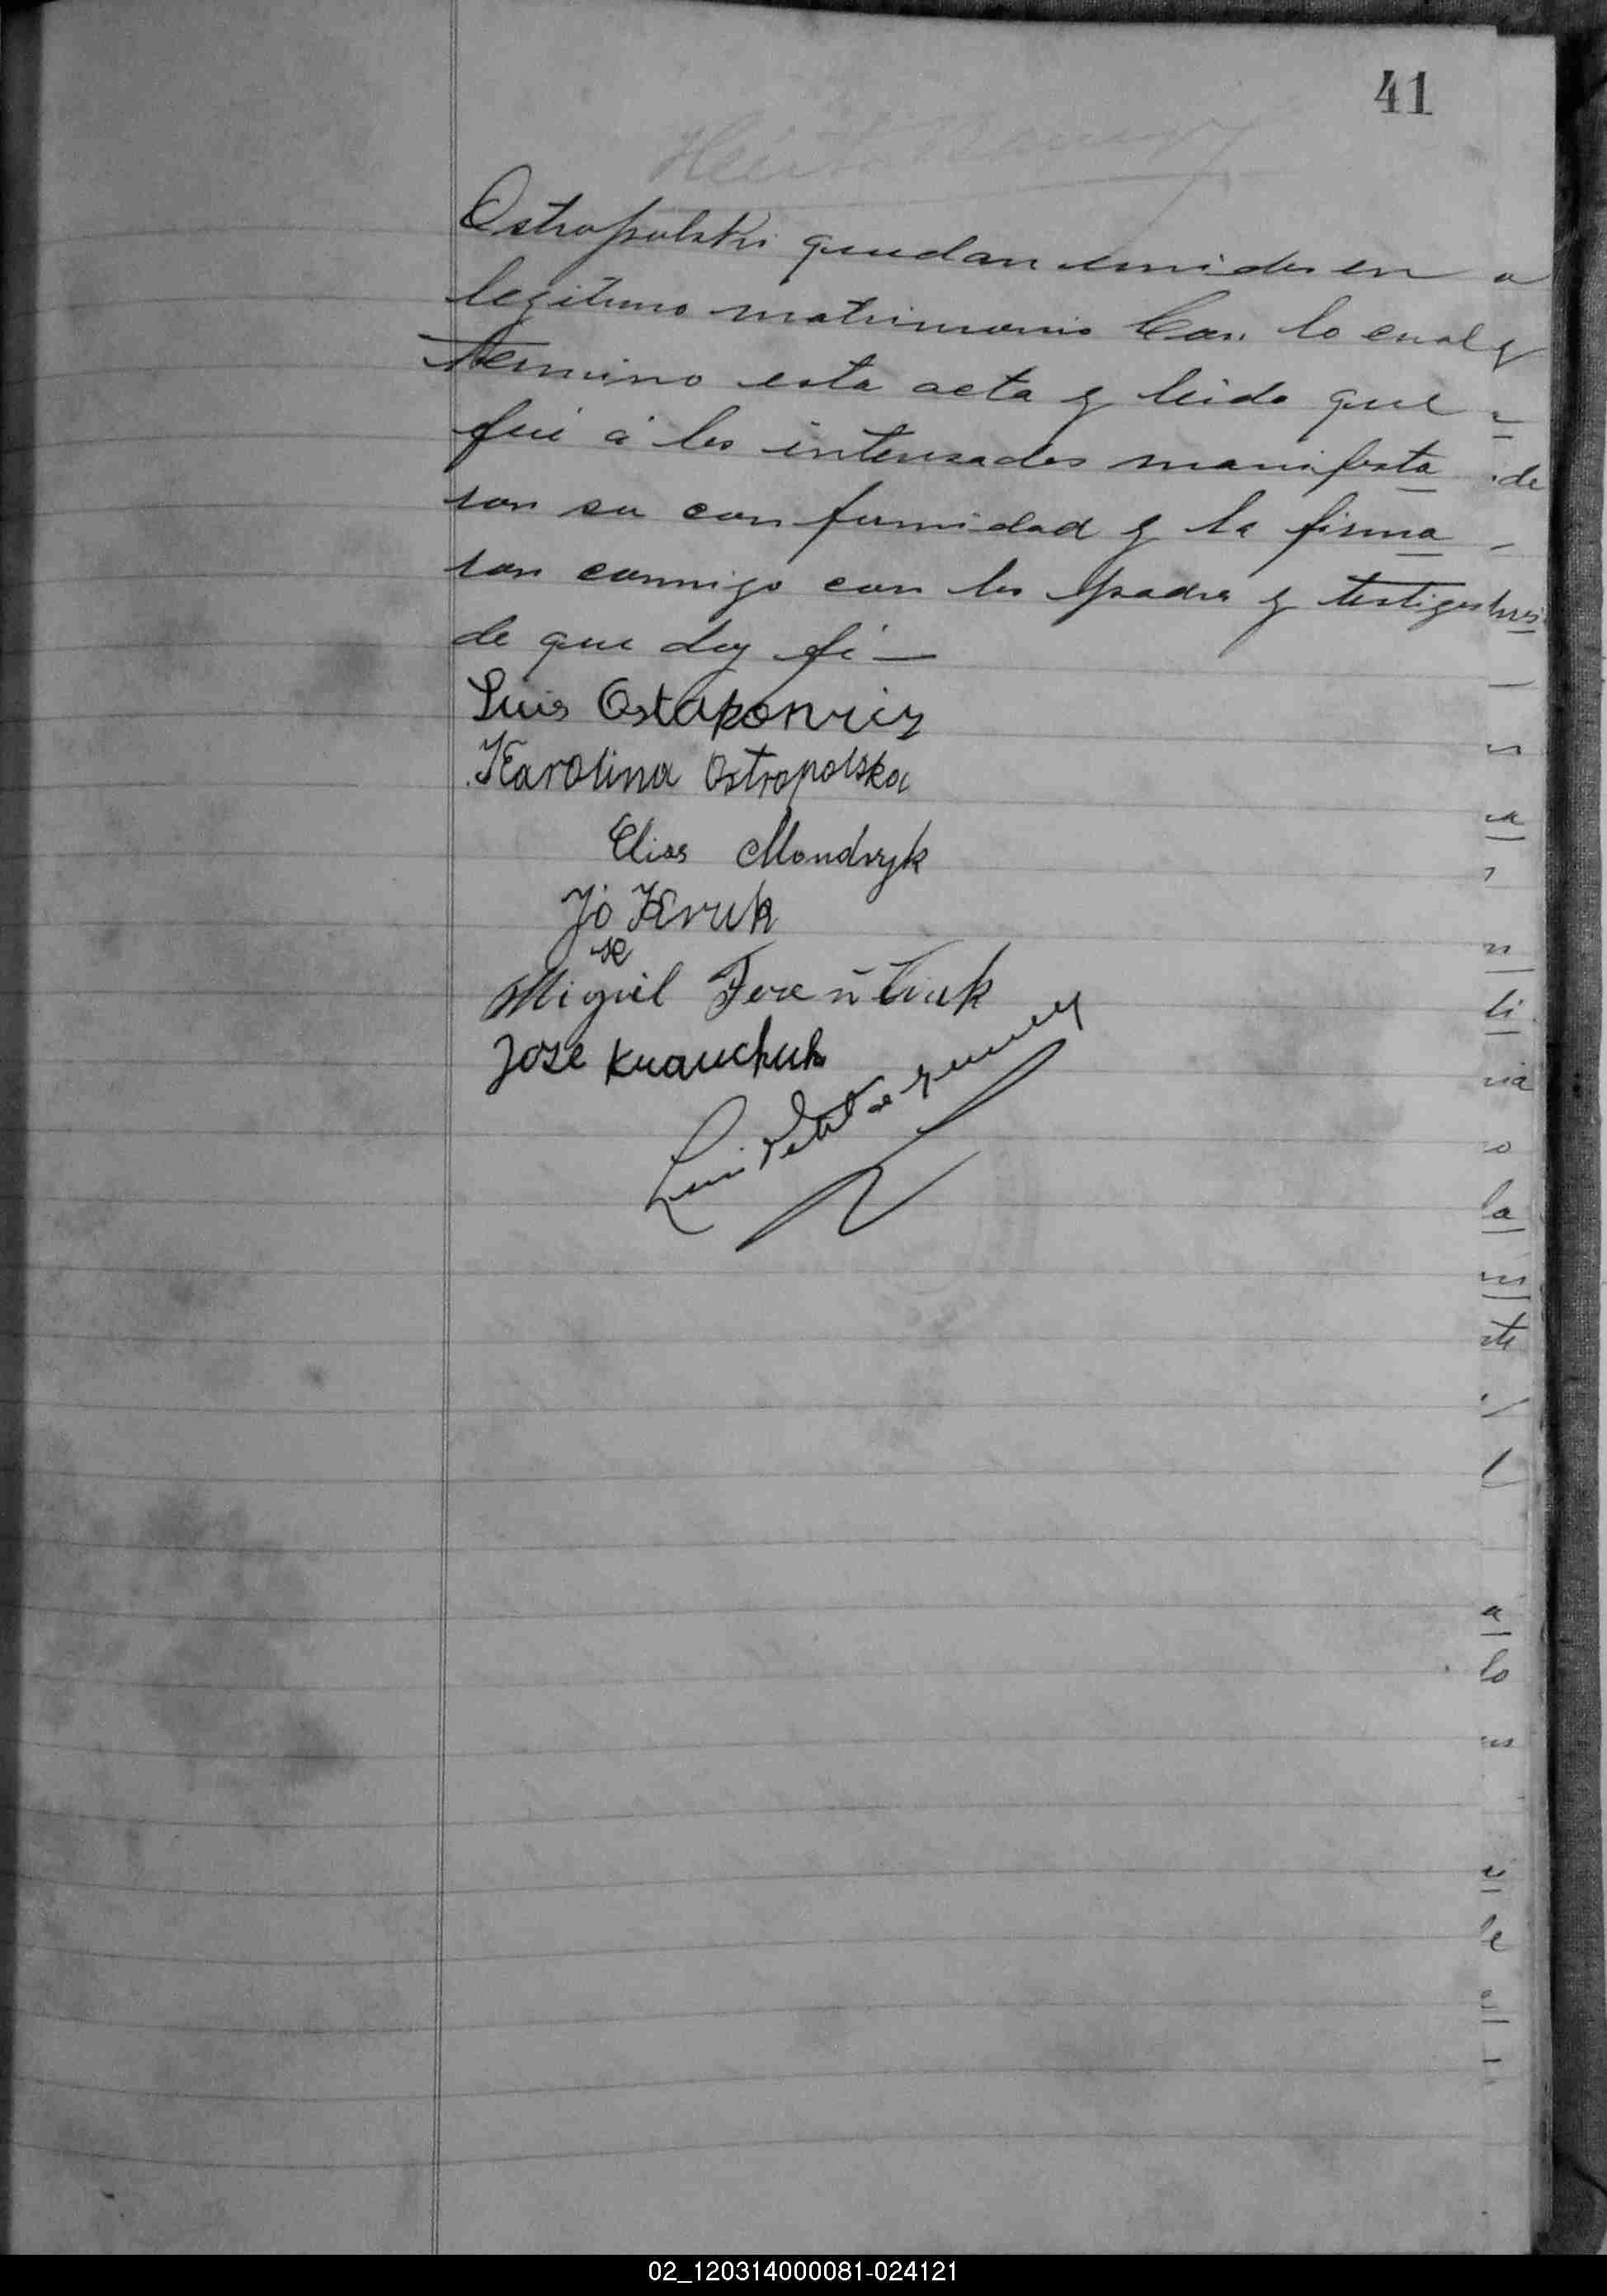 41
Ostropolski quedan unidos en
legitimo matrimonio Con lo cual
termino esta acta y leida que
fué á los interesados manifesta
ron su conformidad y la firma
ron conmigo con los padres y testigos
de que doy fé —
Luis Ostapowicz
Karolina Ostropolska
Elias Mondryk
Jo Kruk
se
Miguel
Jose Krauchuk
Luis
02_120314000081-024121